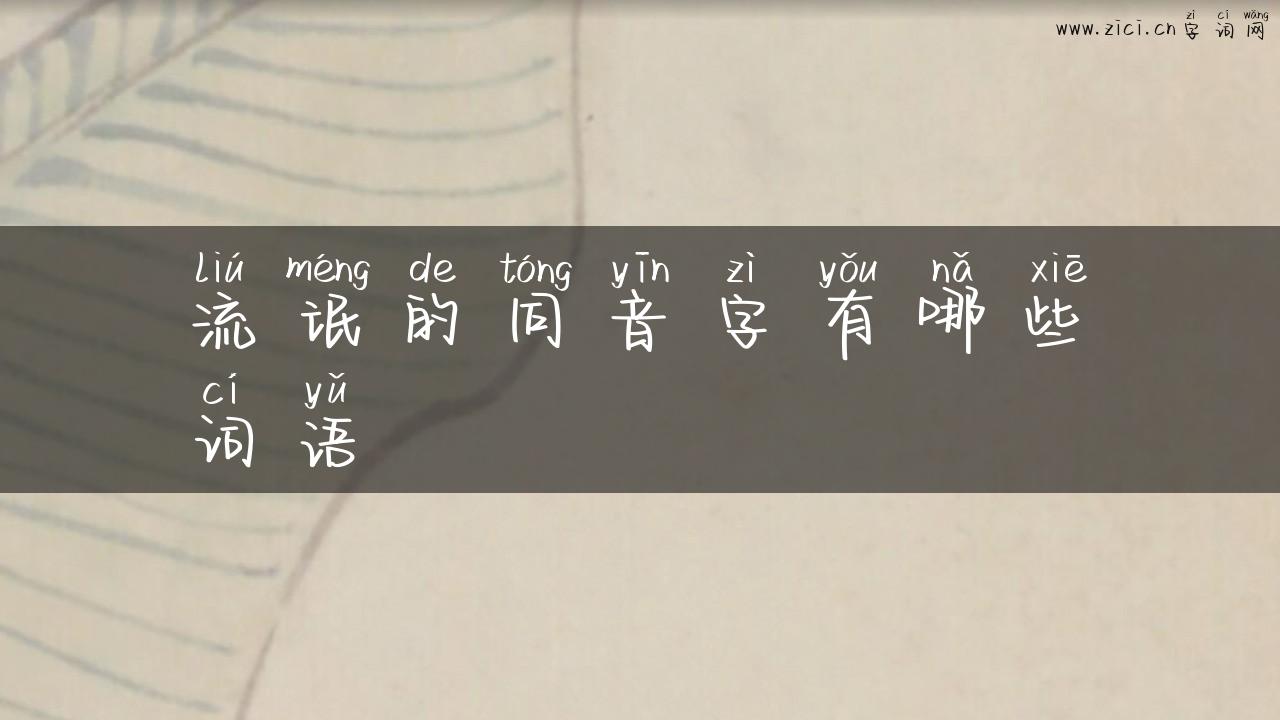 zì cí wǎng
www.zici.cn 字词网
liú méng de tóng yīn zì yǒu nǎ xiē
流氓的同音字有哪些
cí yǔ
词语